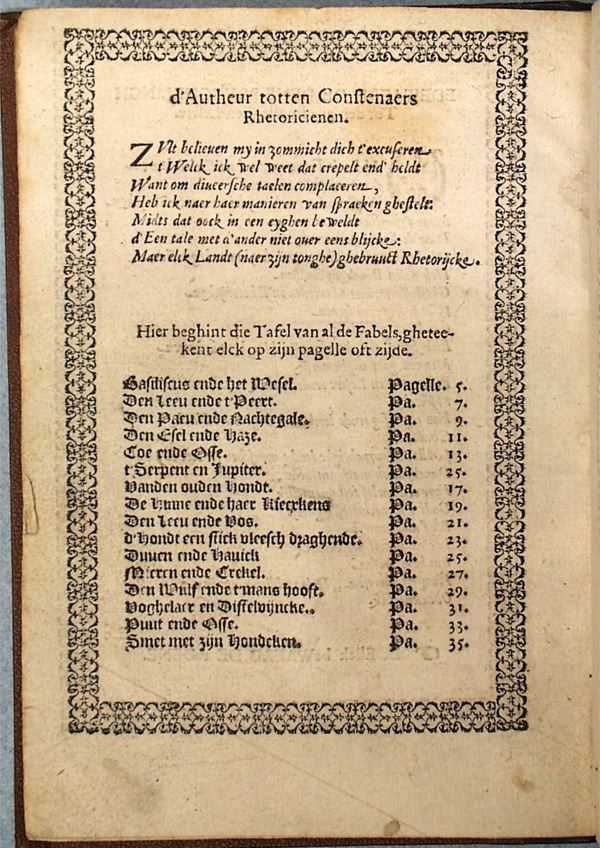 d'Autheur totten Constenaers
Rhetoricienen.
ZVlt belieuen my in zommicht dich t'excuseren
t'Welck ick wel weet dat crepelt end' heldt
Want om diueersche taelen complaceren,
Heb ick naer haer manieren van spraeken ghestelt:
Midts dat oock in een eyghen beweldt
d'Een tale met d'ander niet ouer eens blijcke:
Maer elck Landt (naer zijn tonghe) ghebruuct Rhetorijcke.
Hier beghint die Tafel van al de Fabels, ghetee-
kent elck op zijn pagelle oft zijde.
Basiliscus ende het Wesel. Pagelle. 5.
Den Leeu ende t'Peert. Pa. 7.
Den Paeu ende Nachtegale. Pa. 9.
Den Esel ende Haze. Pa. 11.
Coe ende Osse. Pa. 13.
t'Serpent en Jupiter. Pa. 25.
Vanden ouden Hondt. Pa. 17.
De Hinne ende haer Kieerkens Pa. 19.
Den Leeu ende Vos. Pa. 21.
d'Hondt een stick vleesch draghende. Pa. 23.
Duuen ende Hauick Pa. 25.
Mieren ende Crekel. Pa. 27.
Den Wulf ende t'mans hooft. Pa. 29.
Voghelaer en Distelvijncke. Pa. 31.
Puut ende Osse. Pa. 33.
Smet met zijn Hondeken. Pa. 35.